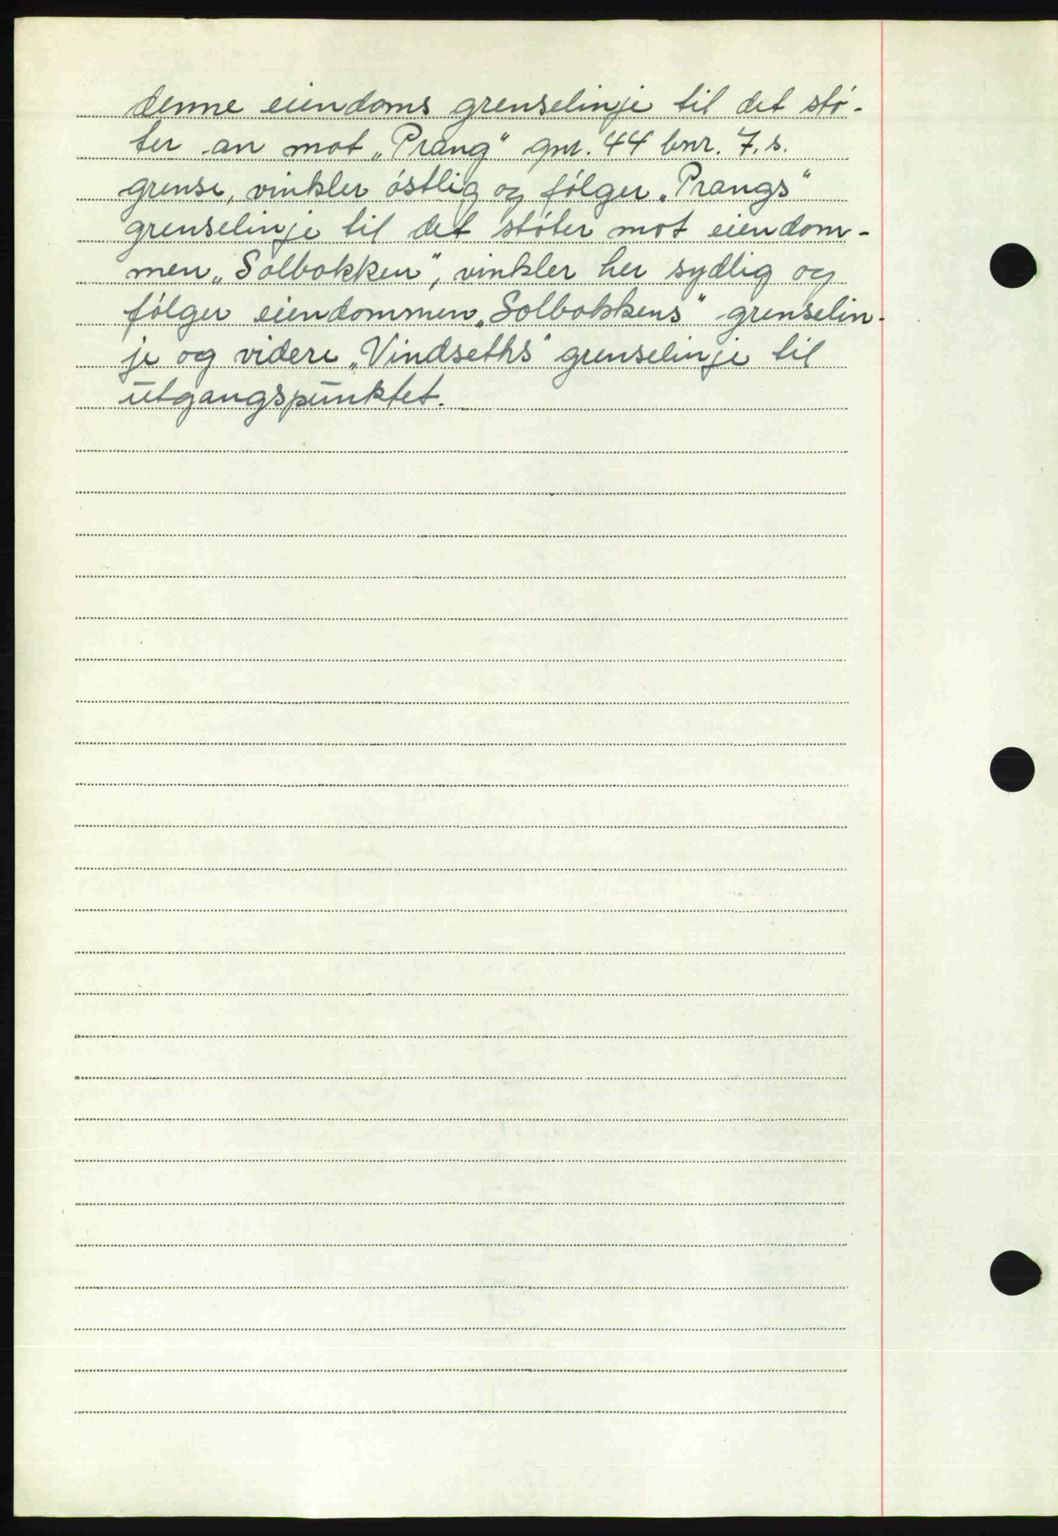 denne eiendoms grenselinje til det stø-
ter an mot „Prang“ gnr. 44 bnr. 7.s.
grense, vinkler østlig og følger „Prangs“
grenselinje til det støter mot eiendom-
men „Solbakken“, vinkler her sydlig og
følger eiendommen „Solbakkens“ grenselin-
je og videre „Vindseths“ grenselinje til
utgangspunktet.